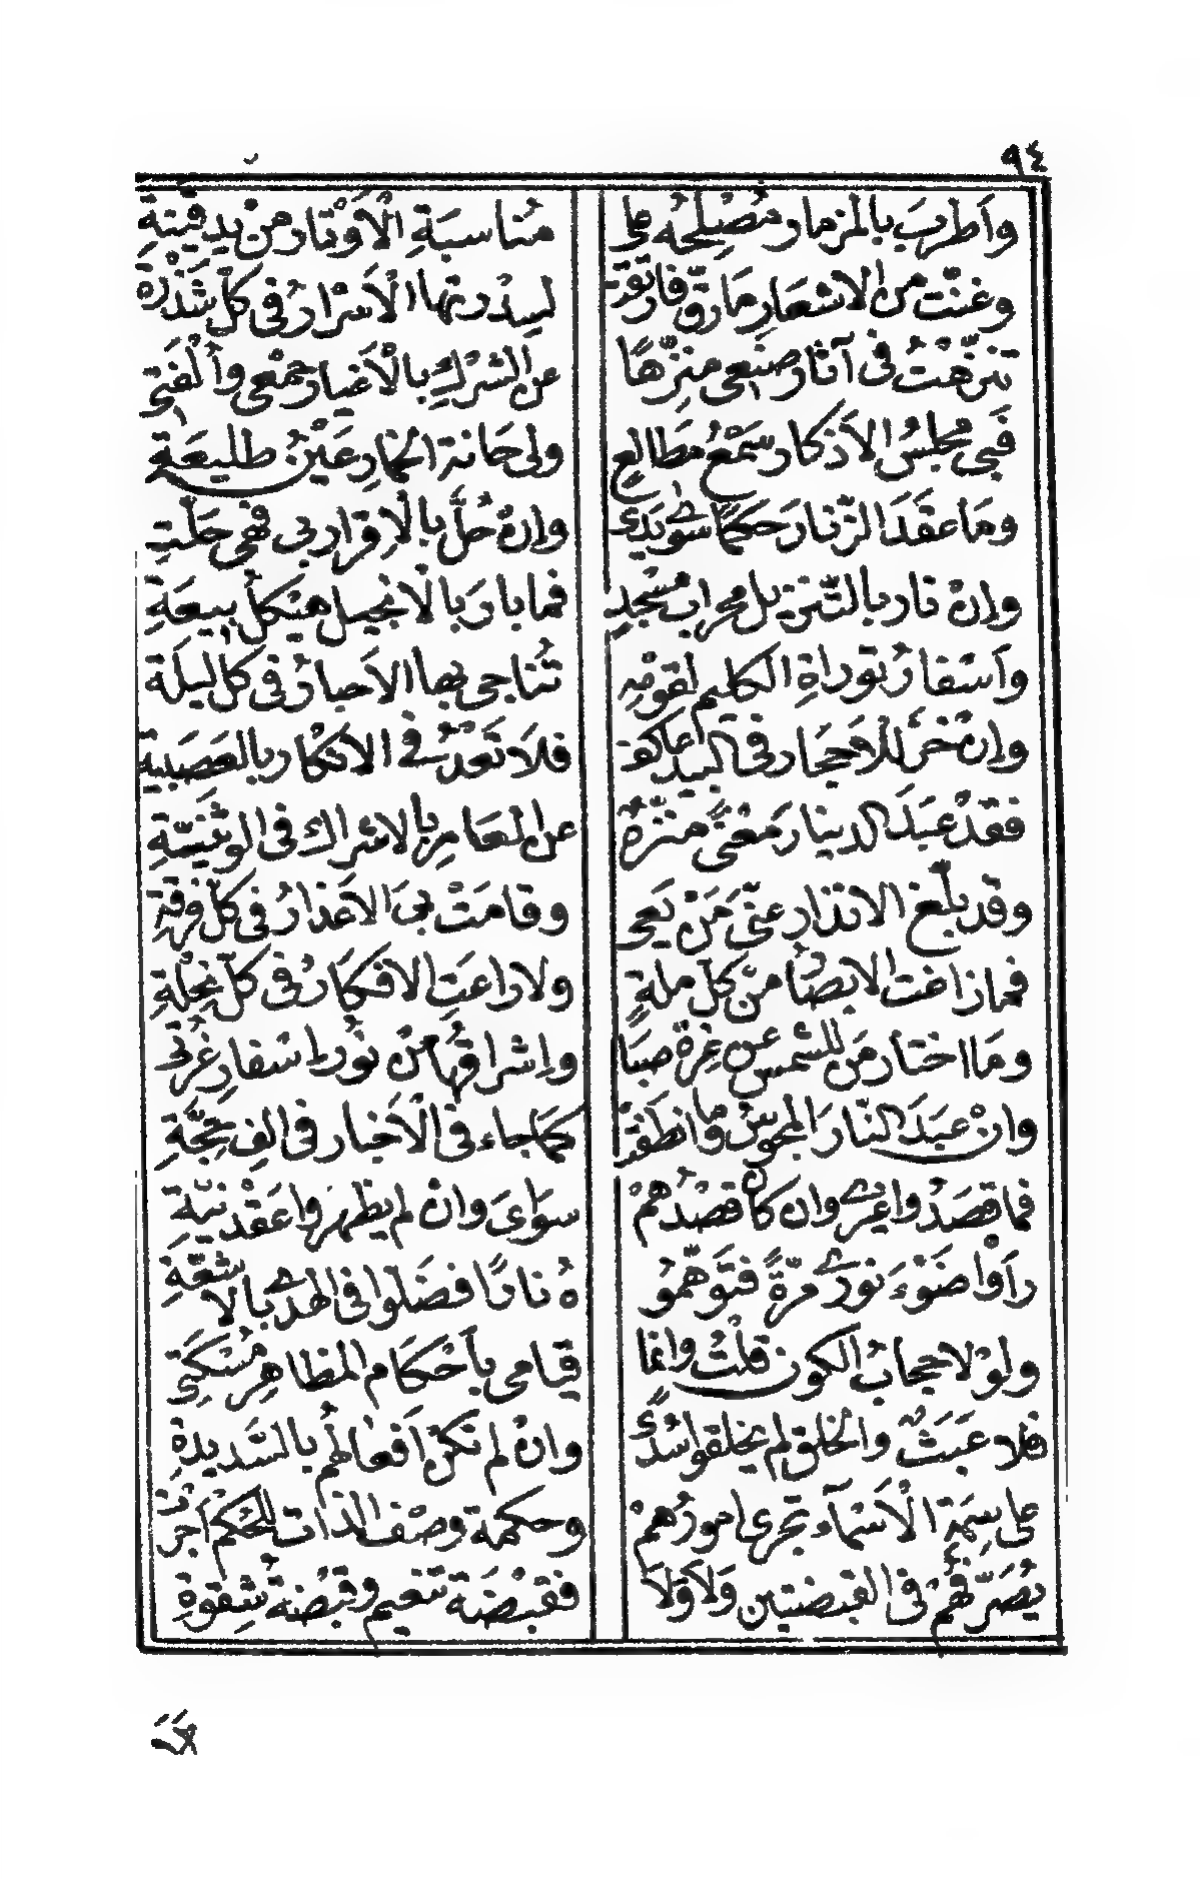 ٩٤
وَأَطْرَبَ بالمزمار مُصْلِحُه على مُناسبَةِ الْأَوْتار من يدِ قَيْنَةِ
وغنّت من الاشعار مَا رَقّ فارتقت لسِدْرتها الْأَسْرارُ في كلّ شَدْوَةِ
تنزّهْتُ في آثار صنعى منزّهًا عن الشرْكِ بالْأَغيار جمْعى وأُلفَتى
فَبى مجلسُ الاَذكار سَمْعُ مطَالعٍ ولى حَانة الخمّار عَيْنُ طليعَةِ
ومَا عقَدَ الزّنارَ حكمًا سوى يَدى وإنْ حُلَّ بالْإِقرار بى فَهى حَلّتِ
وإنْ نار بالتّنزيل محرابُ مسْجدٍ فما بارَ بالْانجيل هيْكلُ بيعَةِ
وأَسْفارُ توراةِ الكليم لقومِه تُناجى بها الاَحبارُ في كل ليلَة
وإنْ خَرّ للاَحجار في البُدّ عاكف فلَا تَعْدُ في الانكار بالعَصَبيةِ
فقدْ عبَدَ الدينارَ مَعْنًى منزّهٌ عن العار بالاشراك في الوثنيّةِ
وقد بلّغ الانذار عنّى مَنْ بَغى وقامَتْ بىَ الاعْذارُ في كلّ فرقة
فما زاغت الابصَارُ من كلّ ملةٍ ولا راغتِ الافكَارُ في كلّ نِحْلةِ
ومَا اختار مَن للشمس عن غِرّة صبَا وإشراقُها منْ نُور اسْفارِ غُرّتى
وانْ عبَدَ النّارَ المجوسُ وما انطَفَت كمَا جاء في الْأَخبار في الفِ حِجّةِ
فما قصَدُوا غيرى وان كان قصْدُهمْ سوَاىَ وانْ لم يظهرُوا عَقْد نيّةِ
رأَوْا ضَوْءَ نورى مرّةً فتوَهّمُو هُ نارًا فضَلّوا في الهدى بالاشعّةِ
ولوْلا حجابُ الكون قلتُ وانما قيامى بأَحْكَام المظاهِر مُسْكتى
فلا عبَثٌ والخلق لم يخلقوا سُدًى وانْ لم تكنْ اَفعالُهم بالسَّديدةِ
على سِمَة الْأَسْمآء تجرى امورُهمْ وحكمة وصْف الذات للحُكم أَجرَتْ
يُصَرّفُهُمْ في القبضتين ولَا ولَا فقبْضَة تنعيم وقبْضَة شِقوةِ